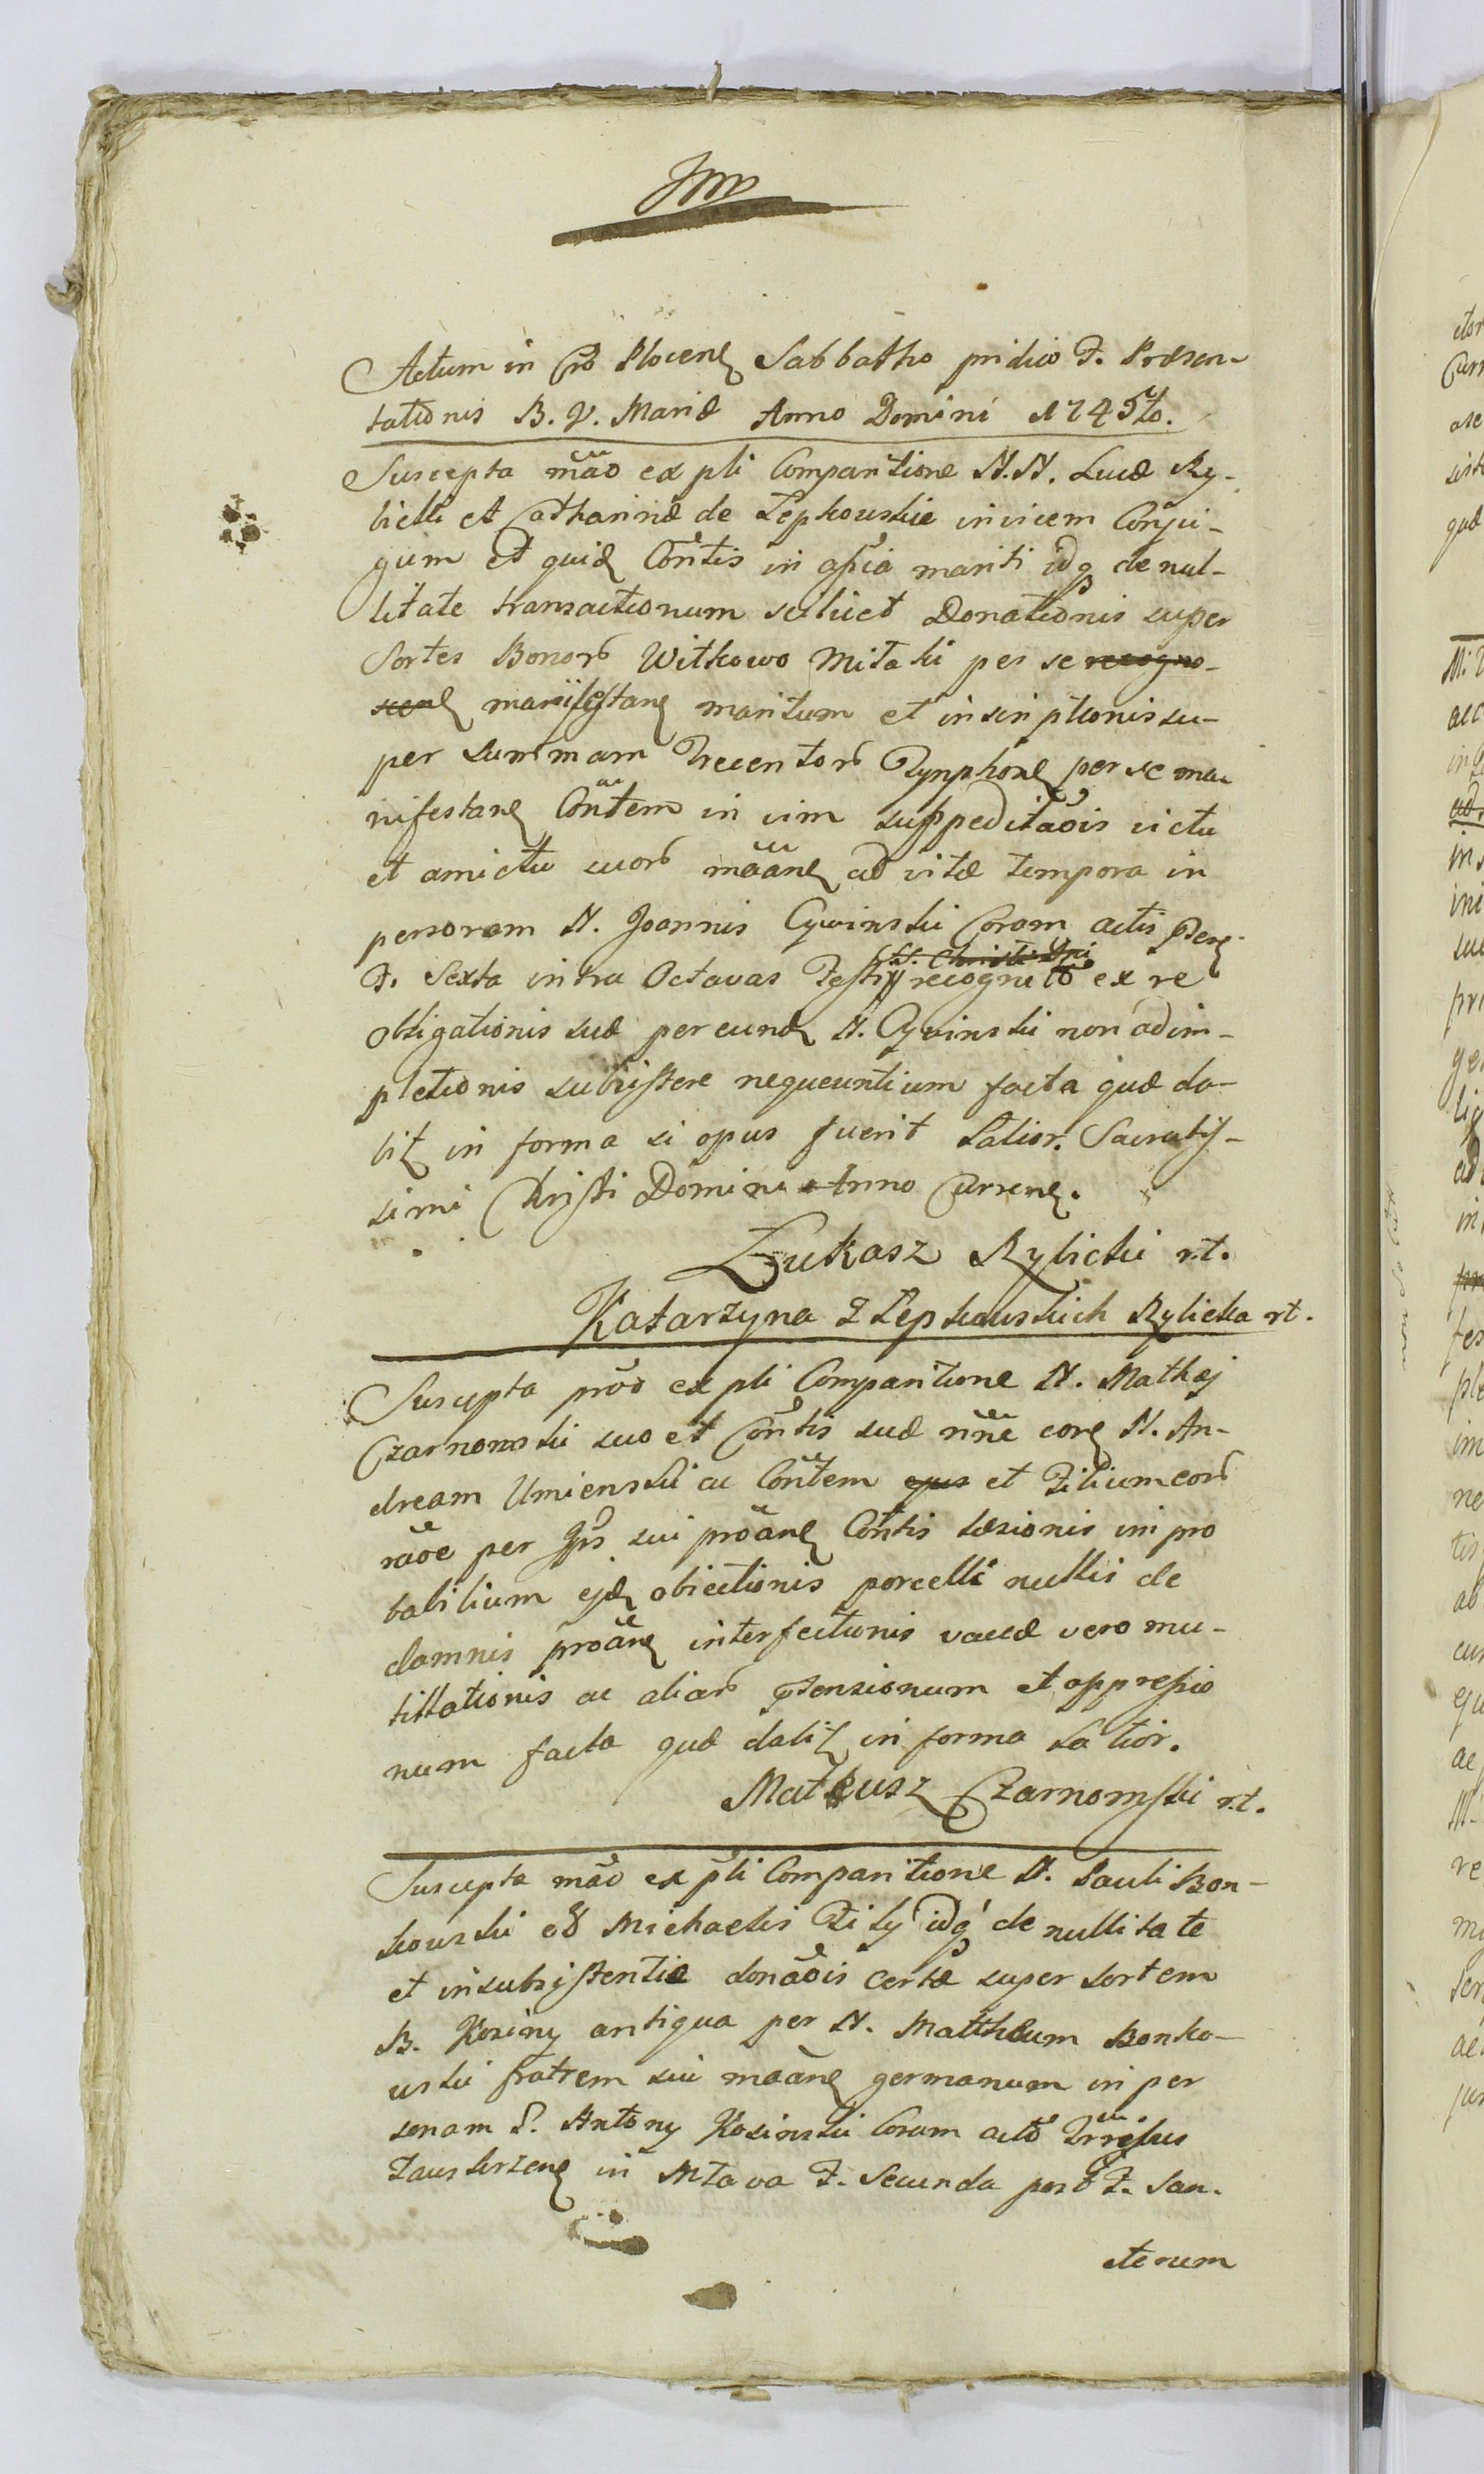 Actum in Cro Plocen Sabbatho pridie F. Præsen-
tationis B. V. Mariæ Anno Domini 1745to.
Suscepta mão ex pli Comparitione N.N. Lucæ Ry-
bicki et Catharinæ de Lepkouskie invicem Conju-
gum et quid Contis in aþia mariti idq de nul-
litate transactionum scilicet Donationis super
Sortes Bonor Witkowo Mitaki per se recogno-
scen manifestan maritum et inscriptionis su-
per summam Trecentor Tynphon per se ma
nifestan Contem in vim suppeditãois victu
et amictu suor mãan ad vitæ tempora in
personam N. Joannis Cywinski Coram actis
F. Sexta intra Octavas Festi recognito ex re
SS. Christi Dni
obligationis suæ per eund N. Cywinski non adim-
pletionis subsistere nequeuntium facta quæ da-
bit in forma si opus fuerit Latior. Sacratis-
simi Christi Domini Anno Curren.
Łukasz Rybicki rt.
Katarzyna z Lepkouskich Rybicka rt.
Suscepta prõo ex pli Comparitione N. Mathej
Czarnomski suo et Contis suæ nñe con N. An-
dream Umienski ac Contem ejus et Filium eor
rãoe per Jps sui prõan Contis Læsionis impro
babilium ejd obiectionis porcelli nullis de
damnis prõan interfectionis vaccæ vero mu-
tillationis ac aliar ptensionum et oppressio
num facta quæ dabit in forma Latior.
Mateusz Czarnomski rt.
Suscepta mão ex pli Comparitione N. Pauli Bon-
kouski et Michaelis Fily idq de nullitate
et insubsistentia donãois certæ super sortem
B. Kosiny antiqua per N. Matthæum Bonko-
uski fratrem sui mãan germanum in per
sonam N. Antony Kosinski Coram acto
Zauskrzen in Mlava F. Secunda post F. San.
ctorum